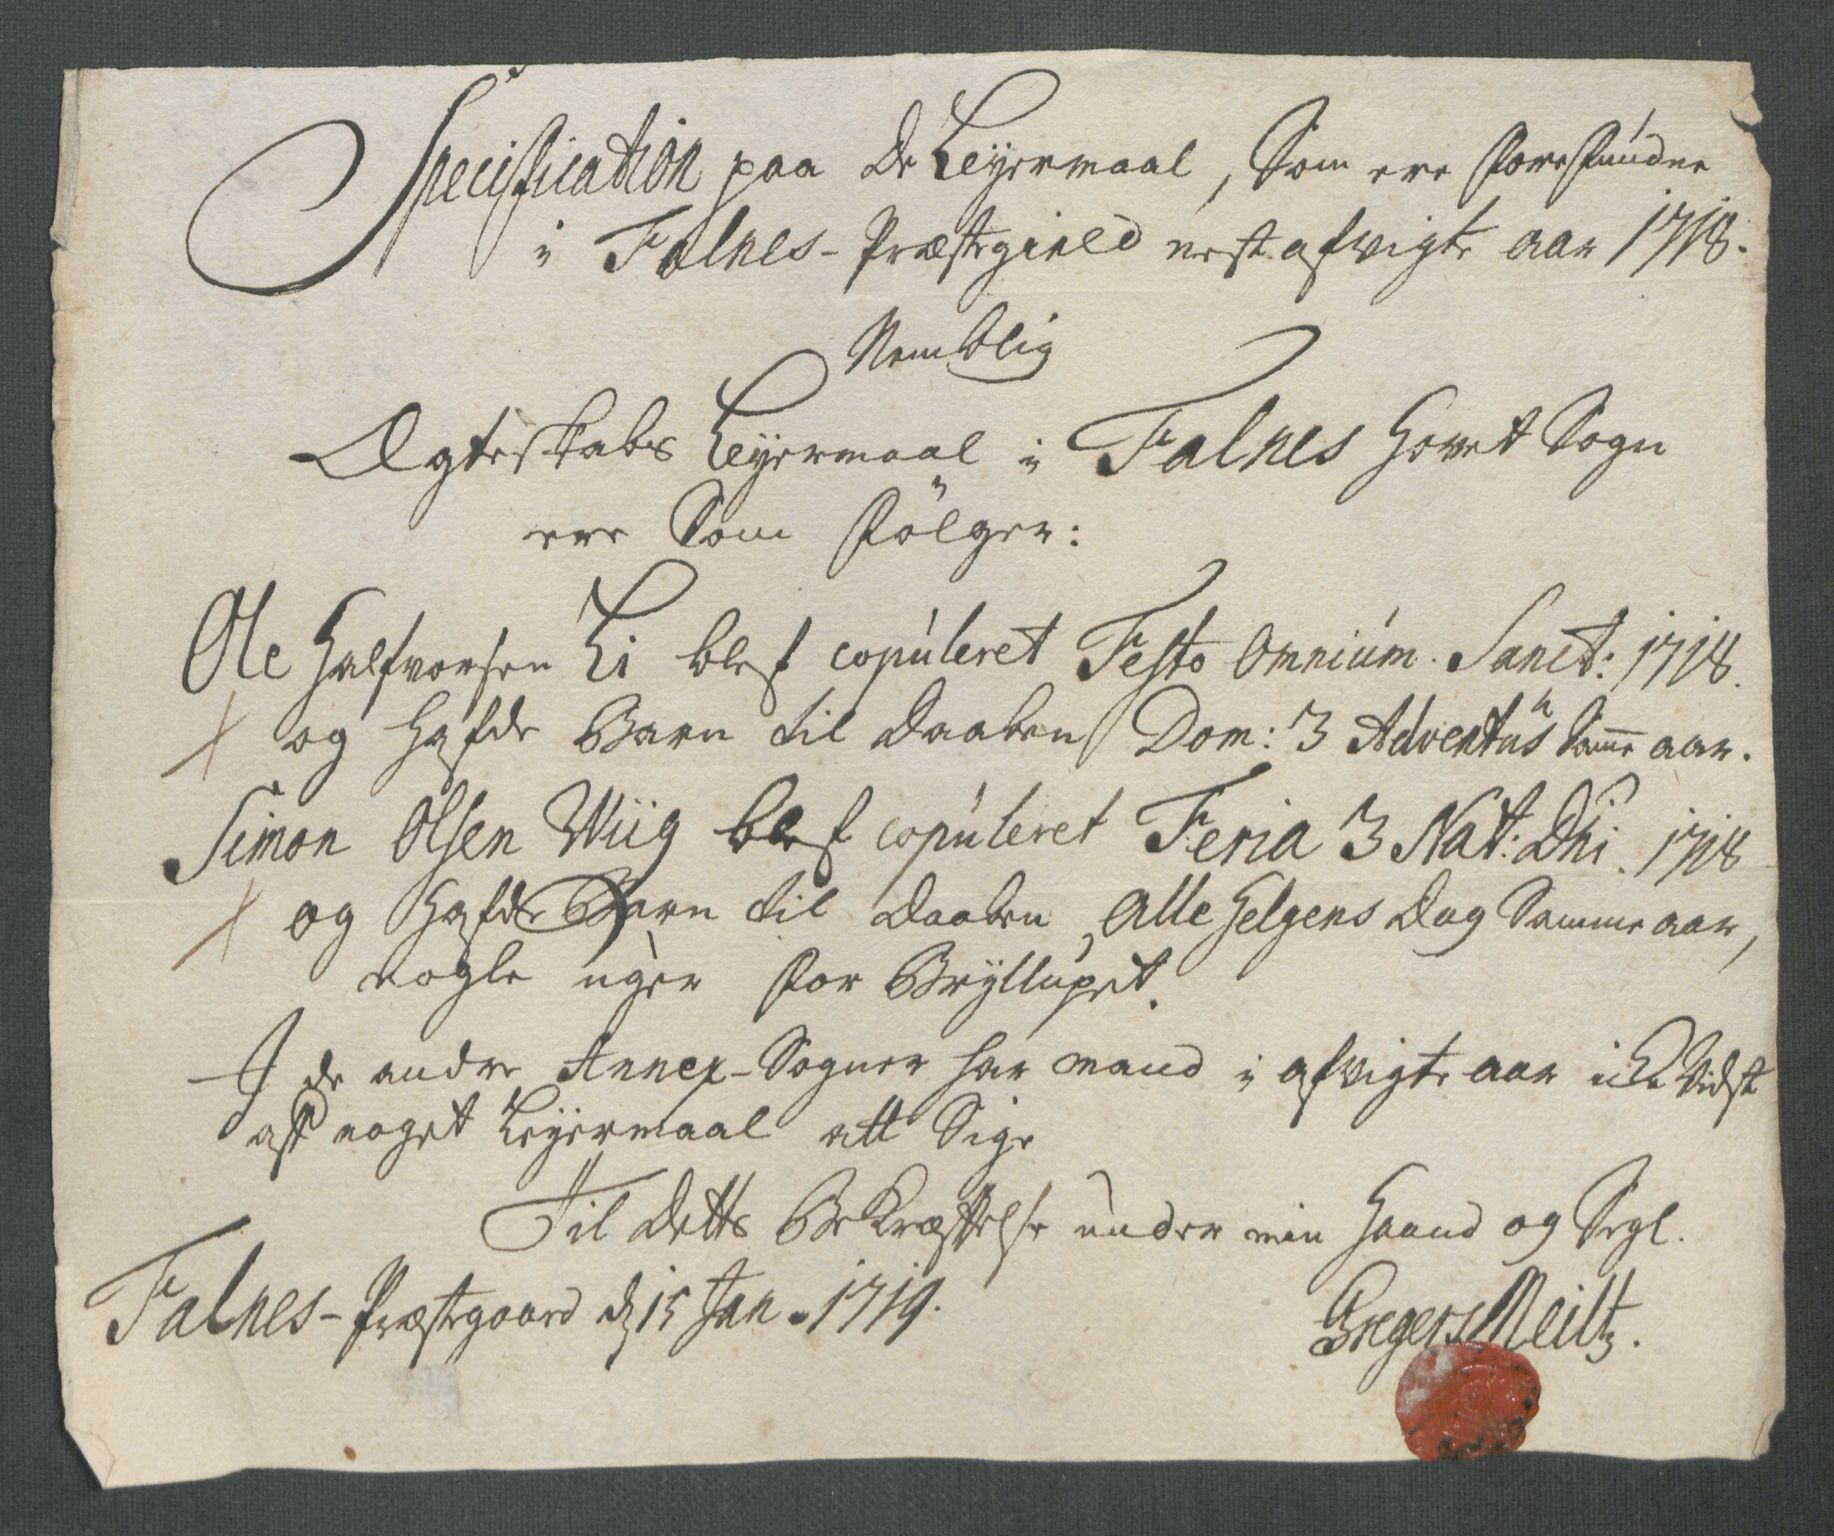 Specification paa de Leyermaal, Som ere forefundne
i Falnes-Præstegield nest afvigte aar 1718.
Nemblig
Ægteskabs Leyermaal i Falnes Hovet Sogn
ere Som fölger:
Ole Halfvorsen Li blef copuleret Festo Omnium Sanct: 1718.
og hafde Barn til Daaben Dom: 3 Adventus Samme aar.
Simon Olsen Wiig blef copuleret Feria 3 Nat: Dni. 1718
og hafde Barn til Daaben, Alle Helgens Dag Samme aar,
nogle uger for Bryllupet.
I de andre Annex-Sogner har mand i afvigte aar icke Vidst
aff noget Leyermaal att Sige
Til Dette Bekræftelse under min Haand og Segl.
Falnes-Præstegaard d 15 Jan. 1719.
Gregers Meiltz.